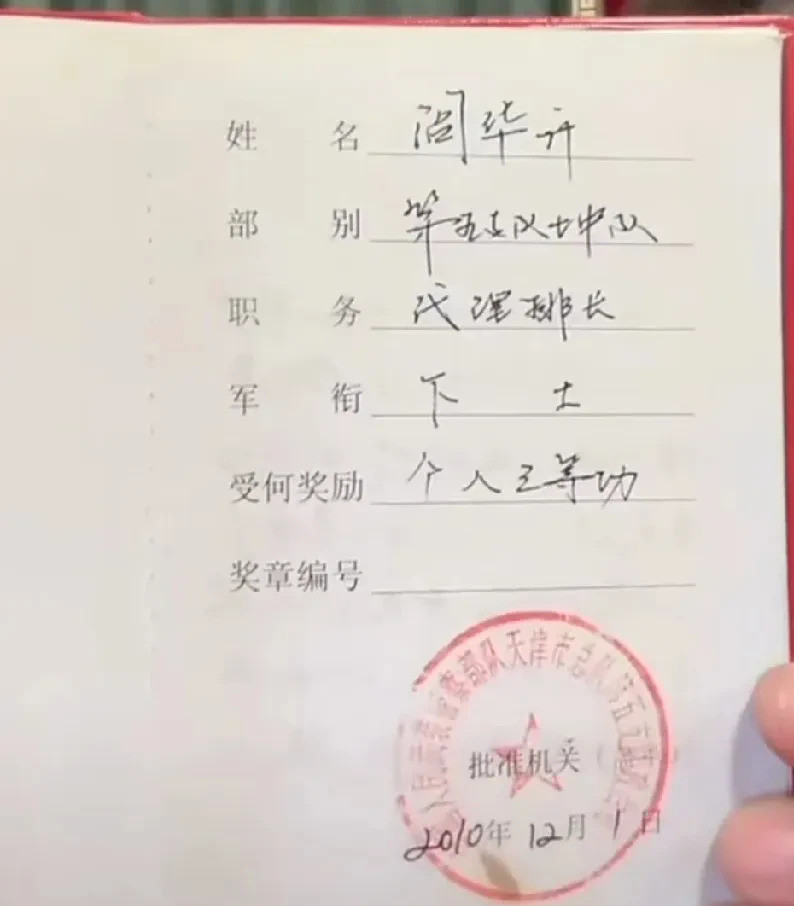 姓 名 阎华许
部 别 第五支队七中队
职 务 代理排长
军 衔 下 士
受何奖励 个人三等功
奖章编号
人民武装警察部队天津市总队第五支队
批准机关（ ）
2010年12月1日